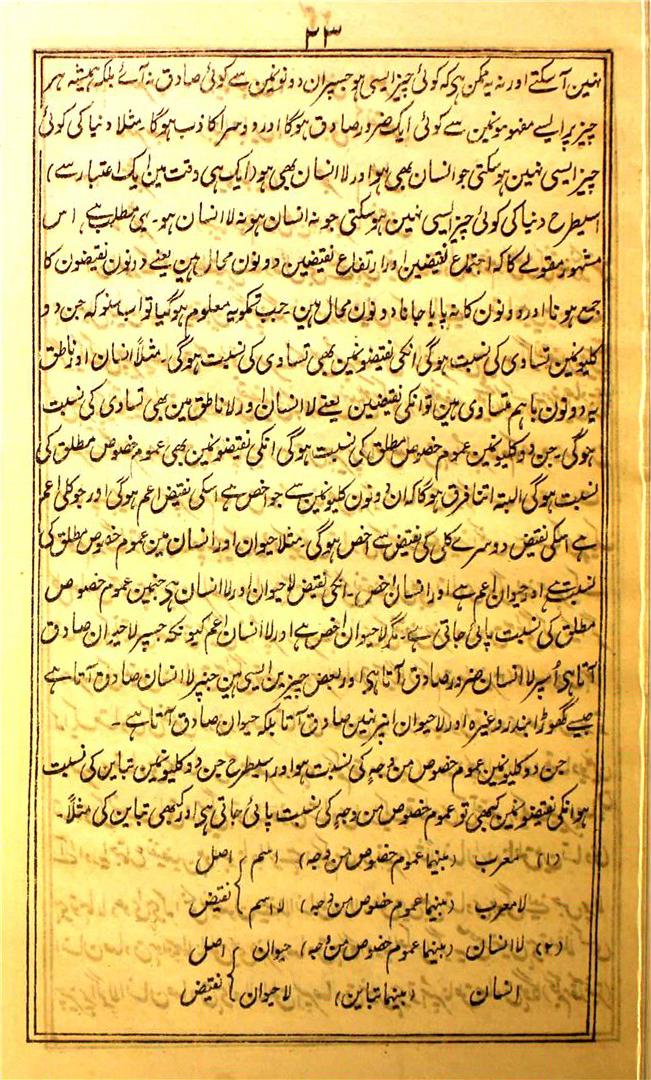 ٢٣
نہین آسکتے اور نہ یہ ممکن ہی کہ کوئی چیز ایسی ہو جسپر ان دونونمین سے کوئی صادق نہ آئے بلکہ ہمیشہ ہر
چیز پر ایسے مفہومونمین سے کوئی ایک ضرور صادق ہوگا اور دوسرا کاذب ہوگا مثلا دنیا کی کوئی
چیز ایسی نہین ہوسکتی جو انسان بھی ہو اور لاانسان بھی ہو (ایک ہی وقت مین ایک اعتبار سے)
اسیطرح دنیا کی کوئی چیز ایسی نہین ہوسکتی جو نہ انسان ہو نہ لاانسان ہو۔ یہی مطلب ہے اس
مشہور مقولے کا کہ اجتماع نقیضین اور ارتفاع نقیضین دونون محال ہین یعنے دونون نقیضون کا
جمع ہونا اور دونون کا نہ پایا جانا دونون محال ہین۔ جب تمکو یہ معلوم ہوگیا تو اب سنو کہ جن دو
کلیونمین تساوی کی نسبت ہوگی انکی نقیضونمین بھی تساوی کی نسبت ہوگی۔ مثلاً انسان اور ناطق
یہ دونون باہم متساوی ہین تو انکی نقیضین یعنے لاانسان اور لاناطق مین بھی تساوی کی نسبت
ہوگی۔ جن دو کلیونمین عموم خصوص مطلق کی نسبت ہوگی انکی نقیضونمین بھی عموم خصوص مطلق کی
نسبت ہوگی البتہ اتنا فرق ہوگا کہ ان دونون کلیونمین سے جو اخص ہے اسکی نقیض اعم ہوگی اور جو کلی اعم
ہے اسکی نقیض دوسرے کلی کی نقیض سے اخص ہوگی۔ مثلا حیوان اور انسان مین عموم خصوص مطلق کی
نسبت ہے اور حیوان اعم ہے اور انسان اخص۔ انکی نقیض لاحیوان اور لاانسان ہی جنمین عموم خصوص
مطلق کی نسبت پائی جاتی ہے۔ مگر لاحیوان اخص ہے اور لاانسان اعم کیونکہ جسپر لاحیوان صادق
آتا ہی اُسپر لاانسان ضرور صادق آتا ہی اور بعض چیزین ایسی ہین جنپر لاانسان صادق آتا ہے
جیسے گھوڑا بندر وغیرہ اور لاحیوان انپر نہین صادق آتا بلکہ حیوان صادق آتا ہے۔
جن دو کلیونمین عموم خصوص من وجہٍ کی نسبت ہو اور اسیطرح جن دو کلیونمین تباین کی نسبت
ہو انکی نقیضونمین کبھی تو عموم خصوص من وجہٍ کی نسبت پائی جاتی ہی اور کبھی تباین کی مثلاً۔
(۱) معرب (بینہما عموم خصوص من وجہ) اسم } اصل
لامعرب (بینہما عموم خصوص من وجہ) لااسم } نقیض
(۲) لاانسان (بینہما عموم خصوص من وجہ) حیوان } اصل
انسان (بینہما تباین) لاحیوان } نقیض